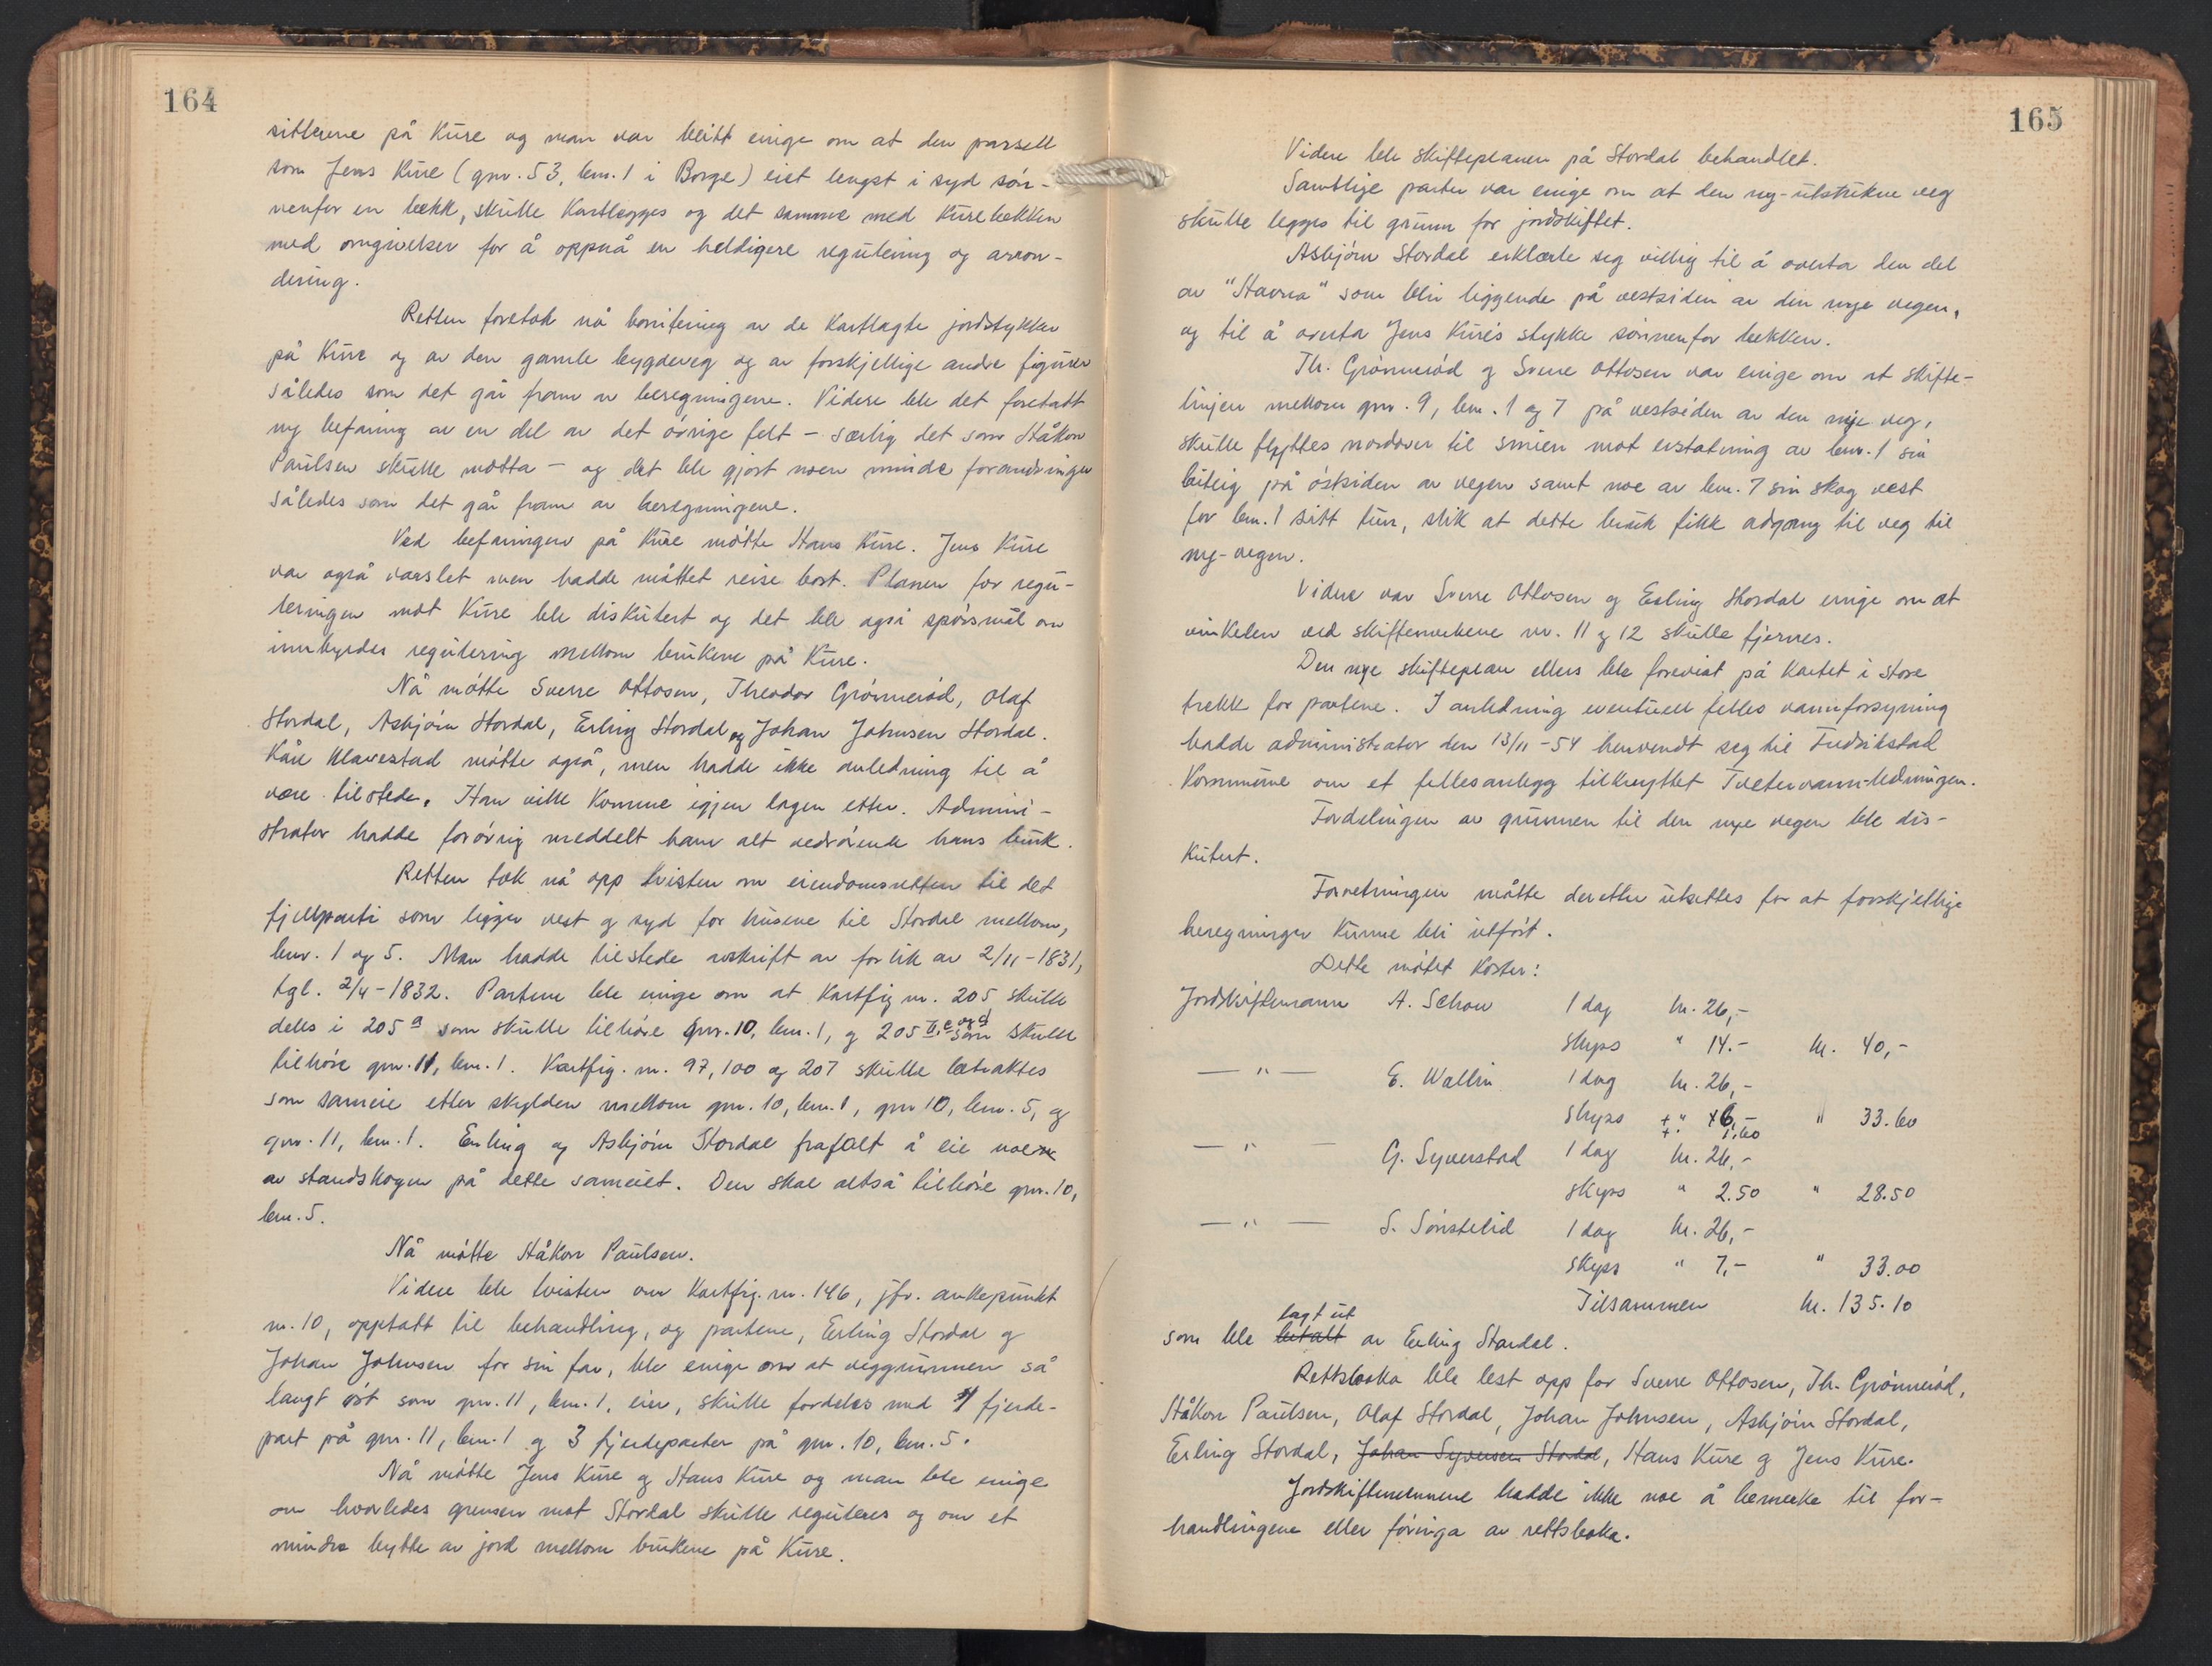 164
sitterne på Kure og man var blitt enige om at den parsell
som Jens Kure (gnr. 53, bnr. 1 i Borge) eiet lengst i syd søn-
nenfor en bekk, skulle kartlegges og det samme med Kurebekken
med omgivelser for å oppnå en heldigere regulering og arron-
dering.
Retten foretok nå bonitering av de kartlagte jordstykker
på Kure og av den gamle bygdeveg og av forskjellige andre figurer
således som det går fram av beregningene. Videre ble det foretatt
ny befaring av en del av det øvrige felt - særlig det som Håkon
Paulsen skulle motta - og det ble gjort noen mindre forandringer
således som det går fram av beregningene.
Ved befaringen på Kure møtte Hans Kure. Jens Kure
var også varslet men hadde måttet reise bort. Planen for regu-
leringen mot Kure ble diskutert og det ble også spørsmål om
innbyrdes regulering mellom brukene på Kure.
Nå møtte Sverre Ottosen, Theodor Grønnerød, Olaf
Stordal, Asbjørn Stordal, Erling Stordal og Johan Johnsen Stordal.
Kåre Klavestad møtte også, men hadde ikke anledning til å
være tilstede. Han ville komme igjen lagen etter. Admini-
strator hadde forøvrig meddelt ham alt vedrørende hans bruk.
Retten tok nå opp tvisten om eiendomsretten til det
fjellparti som ligger vest og syd for husene til Stordal mellom,
bnr. 1 og 5. Man hadde tilstede avskrift av forlik av 2/11-1831,
tgl. 2/4-1832. Partene ble enige om at Kartfig nr. 205 skulle
deles i 205 a som skulle tilhøre gnr. 10, bnr. 1, og 205 b, c og d som skulle
tilhøre gnr. 11, bnr. 1. Kartfig. nr. 97, 100 og 207 skulle betraktes
som sameie etter skylden mellom gnr. 10, bnr. 1, gnr 10, bnr. 5, og
gnr. 11, bnr. 1. Erling og Asbjørn Stordal frafalt å eie noe
av standskogen på dette sameiet. Den skal altså tilhøre gnr. 10,
bnr. 5.
Nå møtte Håkon Paulsen.
Videre ble tvisten om Kartfig. nr. 146, jfr. ankepunkt
nr. 10, opptatt til behandling, og partene, Erling Stordal og
Johan Johnsen for sin far, ble enige om at veggrunnen så
langt øst som gnr. 11, bnr. 1, eier, skulle fordeles med 1 fjerde-
part på gnr. 11, bnr. 1 og 3 fjerdeparter på gnr. 10, bnr. 5.
Nå møtte Jens Kure og Hans Kure og man ble enige
om hvorledes grensen mot Stordal skulle reguleres og om et
mindre bytte av jord mellom brukene på Kure.
165
Videre ble skifteplanen på Stordal behandlet.
Samtlige parter var enige om at den ny-utstukne veg
skulle legges til grunn for jordskiftet.
Asbjørn Stordal erklærte seg villig til å overta den del
av "Stavna" som blir liggende på vestsiden av den nye vegen,
og til å overta Jens Kure's stykke sønnenfor bekken.
Th. Grønnerød og Sverre Ottosen var enige om at skifte-
linjen mellom gnr. 9, bnr. 1 og 7 på vestsiden av den nye veg,
skulle flyttes nordover til smien mot erstatning av bnr. 1 sin
luteig på østsiden av vegen samt noe av bnr. 7 sin skog vest
for bnr. 1 sitt tun, slik at dette bruk fikk adgang til veg til
ny-vegen.
Videre var Sverre Ottosen og Erling Stordal enige om at
vinkelen ved skiftemerkene nr. 11 og 12 skulle fjernes.
Den nye skifteplan ellers ble forevist på kartet i store
trekk for partene. I anledning eventuell felles vannforsyning
hadde administrator den 13/11-54 henvendt seg til Fredrikstad
Kommune om et fellesanlegg tilknyttet Tvetervann-ledningen.
Fordelingen av grunnen til den nye vegen ble dis-
kutert.
Forretningen måtte deretter utsettes for at forskjellige
beregninger kunne bli utført.
Dette møtet koster:
Jordskiftemann A. Schou 1 dag kr. 26,-
skyss " 14.- kr. 40,-
— " — E. Wallin 1 dag kr. 26,-
skyss + " 6,- + " 1.60 " 33.60
— " — G. Syverstad 1 dag kr. 26,-
skyss " 2.50 " 28.50
— " — S. Sønstelid 1 dag kr. 26,-
skyss " 7,- " 33.00
Tilsammen kr. 135.10
lagt ut
som ble betalt av Erling Stordal.
Rettsboka ble lest opp for Sverre Ottosen, Th. Grønnerød,
Håkon Paulsen, Olaf Stordal, Johan Johnsen, Asbjørn Stordal,
Erling Stordal, Johan Syversen Stordal, Hans Kure og Jens Kure.
Jordskiftemennene hadde ikke noe å bemerke til for-
handlingene eller føringa av rettsboka.